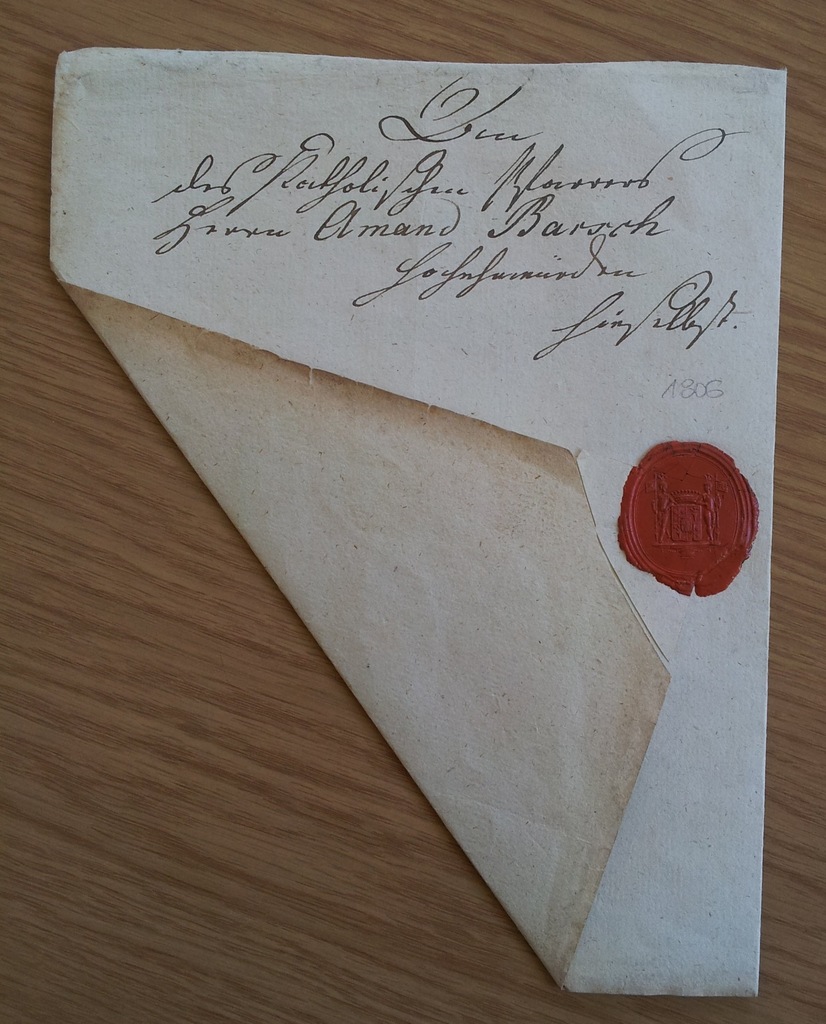 des Katholischen Pfarrers
Herrn Amand Baesch
Hochehrwürden
hieselbst.
1806